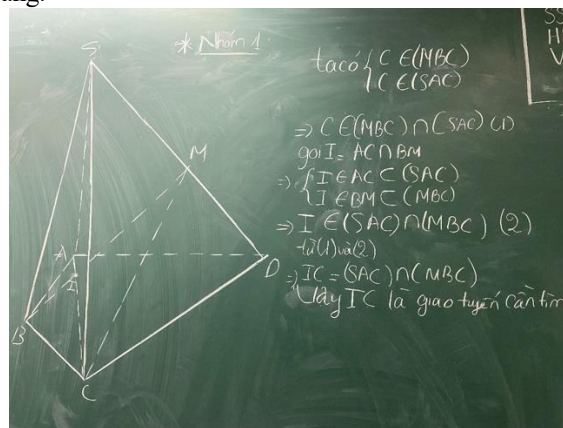 ang.
* Nhóm 1:
S
M
A
I
D
B
C
ta có { C ∈ (MBC)
{ C ∈ (SAC)
=> C ∈ (MBC) ∩ (SAC) (1)
gọi I = AC ∩ BM
=> { I ∈ AC ⊂ (SAC)
{ I ∈ BM ⊂ (MBC)
=> I ∈ (SAC) ∩ (MBC) (2)
từ (1) và (2)
=> IC = (SAC) ∩ (MBC)
Vậy IC là giao tuyến cần tìm
SS
H
V